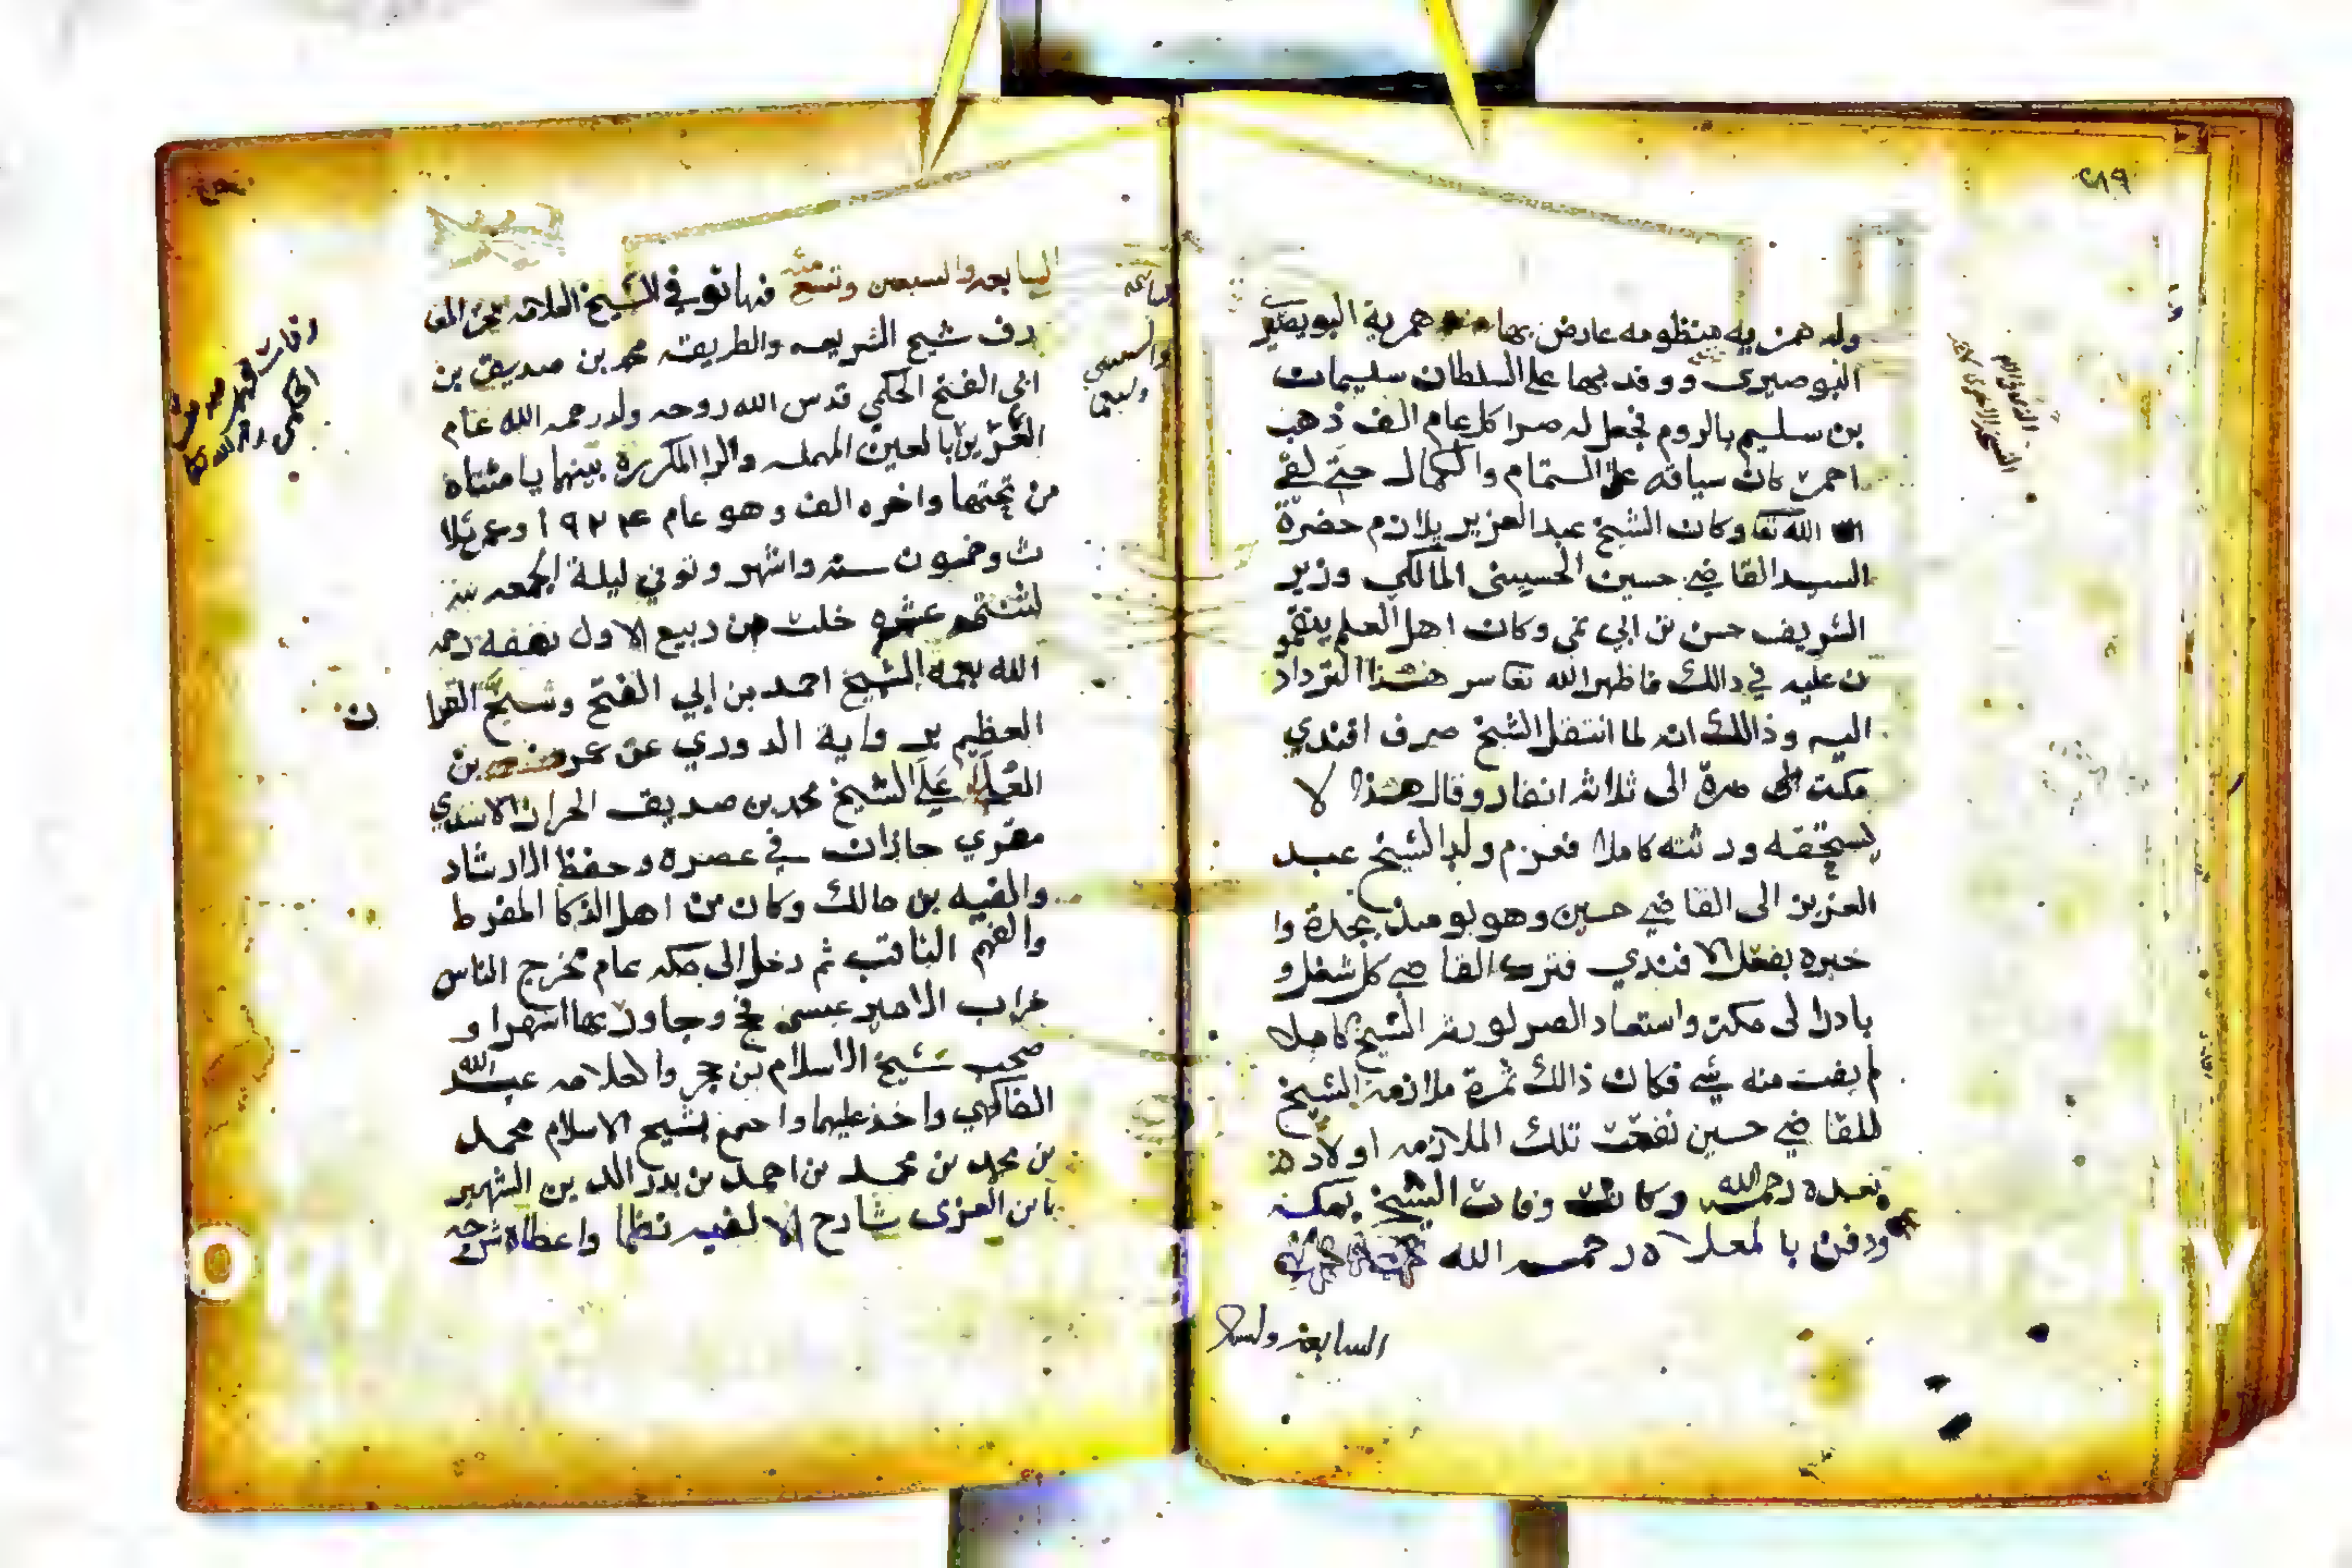 ٢٨٩
وله همزيه منظومه عارض بها همزية البويصير
البوصيري ووفد بها على السلطان سليمان
بن سليم بالروم فجعل له صرا كل عام الف ذهب
احمر كان سياقه على التمام والكمال حتى لقي
الله تعا وكان الشيخ عبد العزيز يلازم حضرة
السيد القاضي حسين الحسيني المالكي وزير
الشريف حسن بن ابي نمي وكان اهل العلم ينقمو
ن عليه في ذالك فاظهر الله تعا سر هذا الترداد
اليه وذالك انه لما انتقل الشيخ صرف افندي
مكة صرة الى ثلاثة انفار وقال هذا لا
يستحقه ورثته كاملا فعزم ولد الشيخ عبد
العزيز الى القاضي حسين وهو يوميذ بجدة وا
خبره بفعل الافندي فترك القاضي كل شغل و
بادر الى مكة واستعاد الصر لورثة الشيخ كاملا
لم يفت منه شي فكان ذالك ثمرة ملازمة الشيخ
للقاضي حسين نفعت تلك الملازمه اولاده
بعده رحمه الله وكانت وفات الشيخ بمكة
ودفن بالمعلاه رحمه الله
السابعة ولسبع
السابعه والسبعين وتسع مئه فيها توفي الشيخ العلامه بحر المعا
رف شيخ الشريعه والطريقه محمد بن صديق بن
ابي الفتح الحكمي قدس الله روحه ولد رحمه الله عام
العزيرا بالعين المهمله والرا المكررة بينهما يا مثناة
من تحتها واخره الف وهو عام ٩٢٤ وعمره ثلا
ث وخمسون سنه واشهر وتوفي ليلة الجمعه
خلت من ربيع الاول نفقه رحمه
الله بعمه الشيخ احمد بن ابي الفتح القرا
ن
العظيم برواية الدوري عن عمرو بن
العلا على الشيخ محمد بن صديق الحراز الاسدي
مقري جازان في عصره وحفظ الارشاد
والفيه بن مالك وكان من اهل الذكا المفرط
والفهم الثاقب ثم دخل الى مكه عام مخرج الناس
خراب الامير عيسى فحج وجاور بها اشهرا و
صحب شيخ الاسلام بن حجر والعلامه عبدالله
الفاكهي واخذ عليهما واجتمع بشيخ الاسلام محمد
بن محمد بن محمد بن احمد بن بدر الدين الشهير
بابن الغزي شارح الالفيه نظما واعطاه شرحه